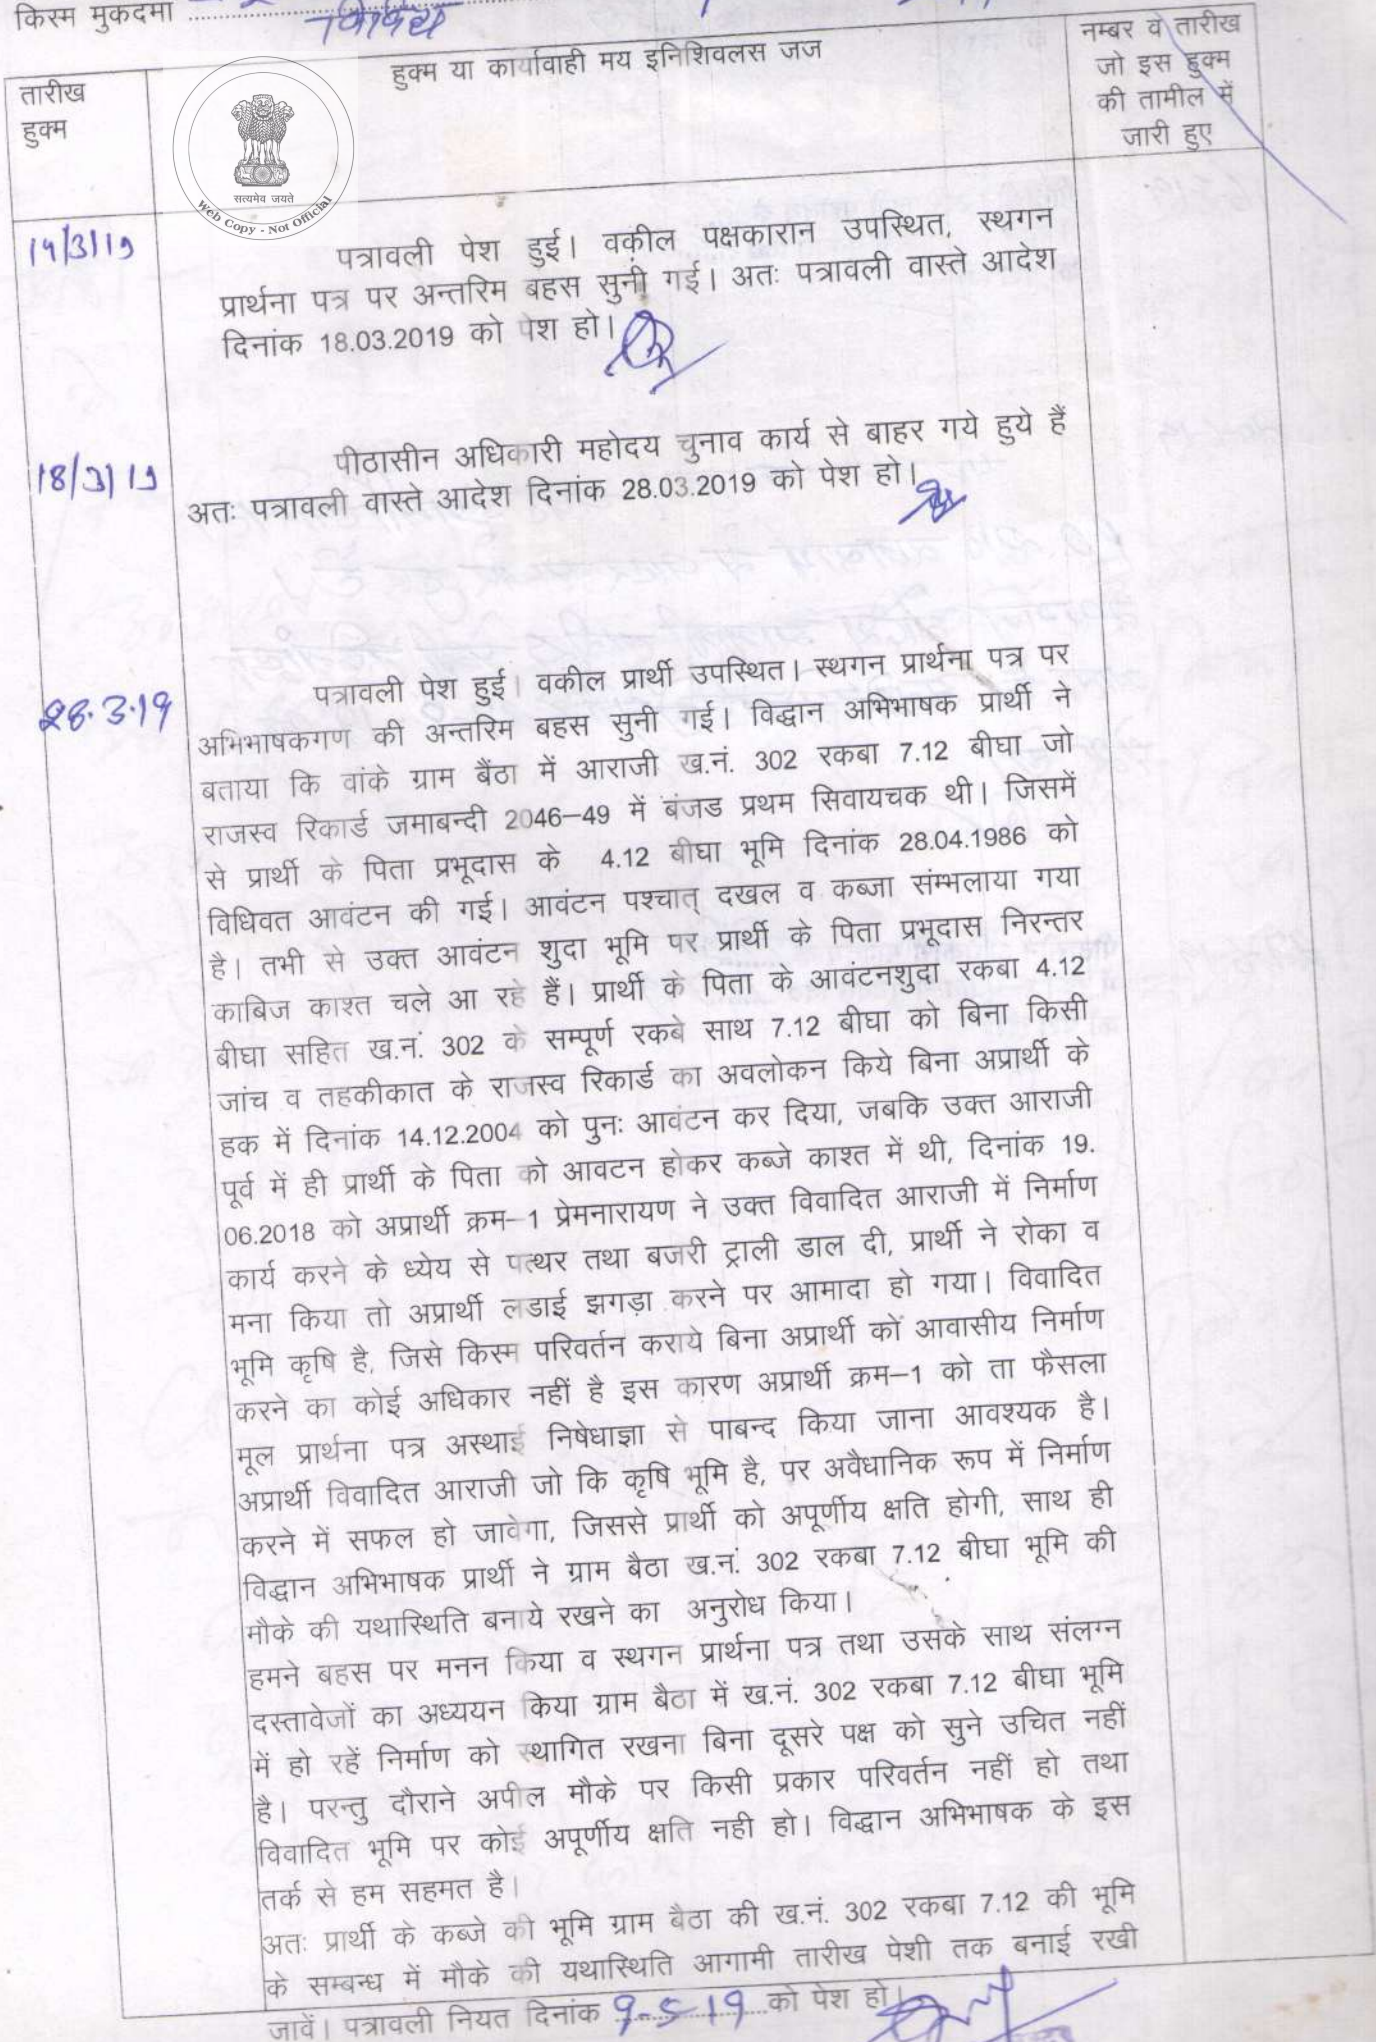 किस्म मुकदमा
विविध
तारीख
हुक्म
हुक्म या कार्यावाही मय इनिशिवलस जज
नम्बर व तारीख
जो इस हुक्म
की तामील में
जारी हुए
सत्यमेव जयते
Web Copy - Not Official
14/3/19
पत्रावली पेश हुई। वकील पक्षकारान उपस्थित, स्थगन
प्रार्थना पत्र पर अन्तरिम बहस सुनी गई। अतः पत्रावली वास्ते आदेश
दिनांक 18.03.2019 को पेश हो।
18/3/19
पीठासीन अधिकारी महोदय चुनाव कार्य से बाहर गये हुये हैं
अतः पत्रावली वास्ते आदेश दिनांक 28.03.2019 को पेश हो।
28.3.19
पत्रावली पेश हुई। वकील प्रार्थी उपस्थित। स्थगन प्रार्थना पत्र पर
अभिभाषकगण की अन्तरिम बहस सुनी गई। विद्धान अभिभाषक प्रार्थी ने
बताया कि वांके ग्राम बैंठा में आराजी ख.नं. 302 रकबा 7.12 बीघा जो
राजस्व रिकार्ड जमाबन्दी 2046–49 में बंजड प्रथम सिवायचक थी। जिसमें
से प्रार्थी के पिता प्रभूदास के 4.12 बीघा भूमि दिनांक 28.04.1986 को
विधिवत आवंटन की गई। आवंटन पश्चात् दखल व कब्जा संम्भलाया गया
है। तभी से उक्त आवंटन शुदा भूमि पर प्रार्थी के पिता प्रभूदास निरन्तर
काबिज काश्त चले आ रहे हैं। प्रार्थी के पिता के आवंटनशुदा रकबा 4.12
बीघा सहित ख.नं. 302 के सम्पूर्ण रकबे साथ 7.12 बीघा को बिना किसी
जांच व तहकीकात के राजस्व रिकार्ड का अवलोकन किये बिना अप्रार्थी के
हक में दिनांक 14.12.2004 को पुनः आवंटन कर दिया, जबकि उक्त आराजी
पूर्व में ही प्रार्थी के पिता को आवटन होकर कब्जे काश्त में थी, दिनांक 19.
06.2018 को अप्रार्थी क्रम–1 प्रेमनारायण ने उक्त विवादित आराजी में निर्माण
कार्य करने के ध्येय से पत्थर तथा बजरी ट्राली डाल दी, प्रार्थी ने रोका व
मना किया तो अप्रार्थी लडाई झगड़ा करने पर आमादा हो गया। विवादित
भूमि कृषि है, जिसे किस्म परिवर्तन कराये बिना अप्रार्थी कों आवासीय निर्माण
करने का कोई अधिकार नहीं है इस कारण अप्रार्थी क्रम–1 को ता फैसला
मूल प्रार्थना पत्र अस्थाई निषेधाज्ञा से पाबन्द किया जाना आवश्यक है।
अप्रार्थी विवादित आराजी जो कि कृषि भूमि है, पर अवैधानिक रूप में निर्माण
करने में सफल हो जावेगा, जिससे प्रार्थी को अपूर्णीय क्षति होगी, साथ ही
विद्धान अभिभाषक प्रार्थी ने ग्राम बैठा ख.नं. 302 रकबा 7.12 बीघा भूमि की
मौके की यथास्थिति बनाये रखने का अनुरोध किया।
हमने बहस पर मनन किया व स्थगन प्रार्थना पत्र तथा उसके साथ संलग्न
दस्तावेजों का अध्ययन किया ग्राम बैठा में ख.नं. 302 रकबा 7.12 बीघा भूमि
में हो रहें निर्माण को स्थागित रखना बिना दूसरे पक्ष को सुने उचित नहीं
है। परन्तु दौराने अपील मौके पर किसी प्रकार परिवर्तन नहीं हो तथा
विवादित भूमि पर कोई अपूर्णीय क्षति नही हो। विद्धान अभिभाषक के इस
तर्क से हम सहमत है।
अतः प्रार्थी के कब्जे की भूमि ग्राम बैठा की ख.नं. 302 रकबा 7.12 की भूमि
के सम्बन्ध में मौके की यथास्थिति आगामी तारीख पेशी तक बनाई रखी
जावें। पत्रावली नियत दिनांक 9-5-19 को पेश हो।